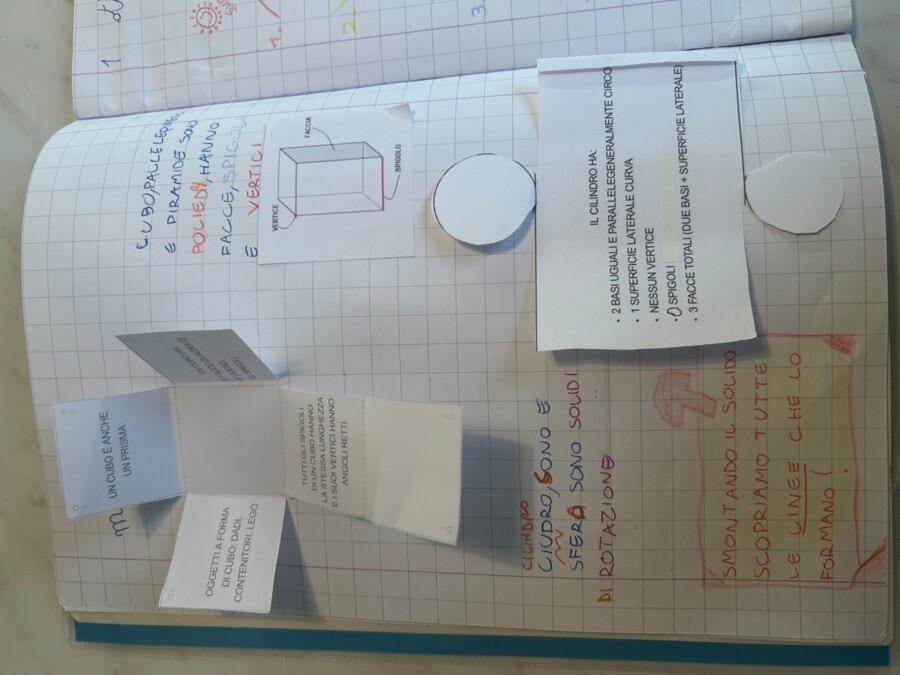 CUBO, PALLELEPIPEDO
E PIRAMIDE SONO
POLIEDRI, HANNO
FACCE, SPIGOLI
E VERTICI
VERTICE
FACCIA
SPIGOLO
UN CUBO È ANCHE
UN PRISMA
UN CUBO HA:
TUTTI GLI SPIGOLI
DI UN CUBO HANNO
LA STESSA LUNGHEZZA
E I SUOI VERTICI HANNO
ANGOLI RETTI
OGGETTI A FORMA
DI CUBO: DADI,
CONTENITORI, LEGO
IL CILINDRO HA:
• 2 BASI UGUALI E PARALLELEGENERALMENTE CIRCO
• 1 SUPERFICIE LATERALE CURVA
• NESSUN VERTICE
• 0 SPIGOLI
• 3 FACCE TOTALI (DUE BASI + SUPERFICIE LATERALE)
CILINDRO
CIUDRO, CONO E
SFERA SONO SOLIDI
DI ROTAZIONE
SMONTANDO IL SOLIDO
SCOPRIAMO TUTTE
LE LINEE CHE LO
FORMANO!